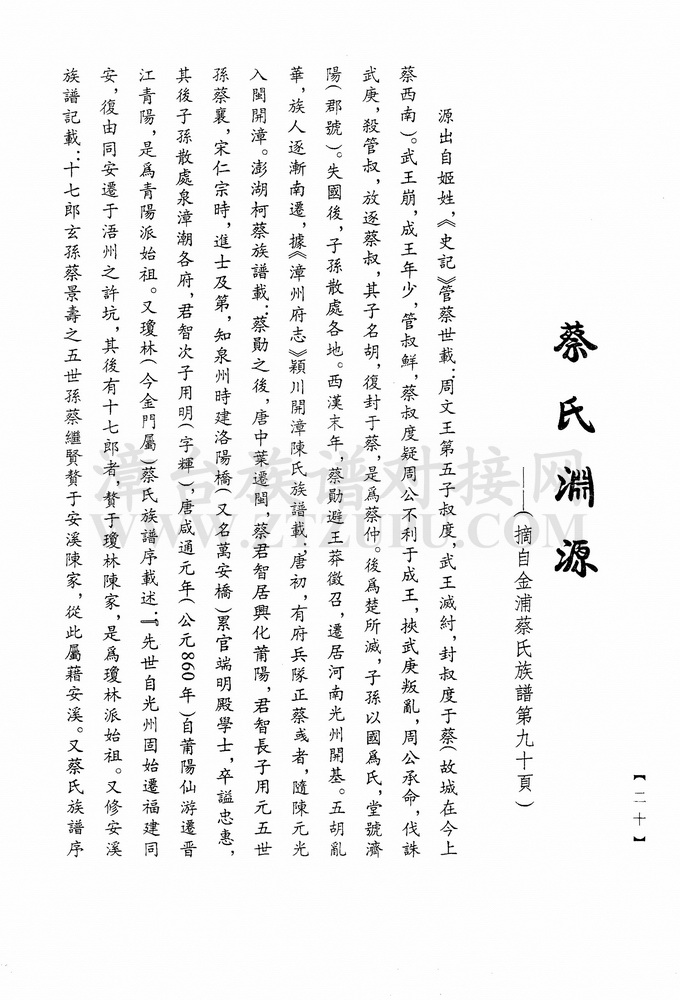 【二十】
蔡氏淵源
——（摘自金浦蔡氏族譜第九十頁）
源出自姬姓，《史記》管蔡世載：周文王第五子叔度，武王滅紂，封叔度于蔡（故城在今上
蔡西南）。武王崩，成王年少，管叔鮮，蔡叔度疑周公不利于成王，挾武庚叛亂，周公承命，伐誅
武庚，殺管叔，放逐蔡叔，其子名胡，復封于蔡，是爲蔡仲。後爲楚所滅，子孫以國爲氏，堂號濟
陽（郡號）。失國後，子孫散處各地。西漢末年，蔡勛避王莽徵召，遷居河南光州開基。五胡亂
華，族人逐漸南遷，據《漳州府志》穎川開漳陳氏族譜載，唐初，有府兵隊正蔡彧者，隨陳元光
入閩開漳。澎湖柯蔡族譜載：蔡勛之後，唐中葉遷閩，蔡君智居興化莆陽，君智長子用元五世
孫蔡襄，宋仁宗時，進士及第，知泉州時建洛陽橋（又名萬安橋）累官端明殿學士，卒謚忠惠，
其後子孫散處泉漳潮各府，君智次子用明（字輝），唐咸通元年（公元860年）自莆陽仙游遷晋
江青陽，是爲青陽派始祖。又瓊林（今金門屬）蔡氏族譜序載述：『先世自光州固始遷福建同
安，復由同安遷于浯州之許坑，其後有十七郎者，贅于瓊林陳家，是爲瓊林派始祖。又修安溪
族譜記載：十七郎玄孫蔡景壽之五世孫蔡繼賢贅于安溪陳家，從此屬藉安溪。又蔡氏族譜序
漳台族谱对接网
WWW.ZTZUPU.COM